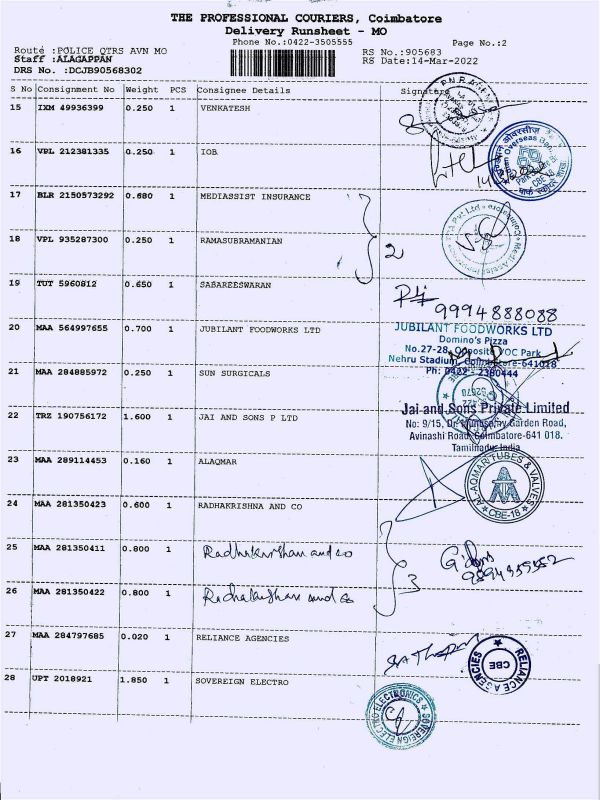 THE PROFESSIONAL COURIERS, Coimbatore
Delivery Runsheet - MO
Phone No.:0422-3505555
Page No.:2
Route :POLICE QTRS AVN MO
RS No.:905683
Staff :ALAGAPPAN
RS Date:14-Mar-2022
DRS No. :DCJB90568302
S No Consignment No Weight PCS Consignee Details Signature
15 IXM 49936399 0.250 1 VENKATESH
16 VPL 212381335 0.250 1 IOB
17 BLR 2150573292 0.680 1 MEDIASSIST INSURANCE
18 VPL 935287300 0.250 1 RAMASUBRAMANIAN
2
19 TUT 5960812 0.650 1 SABAREESWARAN
9994888088
20 MAA 564997655 0.700 1 JUBILANT FOODWORKS LTD
JUBILANT FOODWORKS LTD
Domino's Pizza
No.27-28, Opposite VOC Park
Nehru Stadium, Coimbatore-641018
Ph: 0422 - 2380444
21 MAA 284885972 0.250 1 SUN SURGICALS
22 TRZ 190756172 1.600 1 JAI AND SONS P LTD
Jai and Sons Private Limited
No: 9/15, Dr. Munusamy Garden Road,
Avinashi Road, Coimbatore-641 018.
Tamilnadu, India
23 MAA 289114453 0.160 1 ALAQMAR
ALAQMAR TUBES & VALVES
CBE-18
24 MAA 281350423 0.600 1 RADHAKRISHNA AND CO
25 MAA 281350411 0.800 1 Radhakrishan and co
26 MAA 281350422 0.800 1 Radhakrishan and co
3
27 MAA 284797685 0.020 1 RELIANCE AGENCIES
RELIANCE AGENCIES
CBE
28 UPT 2018921 1.850 1 SOVEREIGN ELECTRO
SOVEREIGN ELECTRO ELECTRONICS